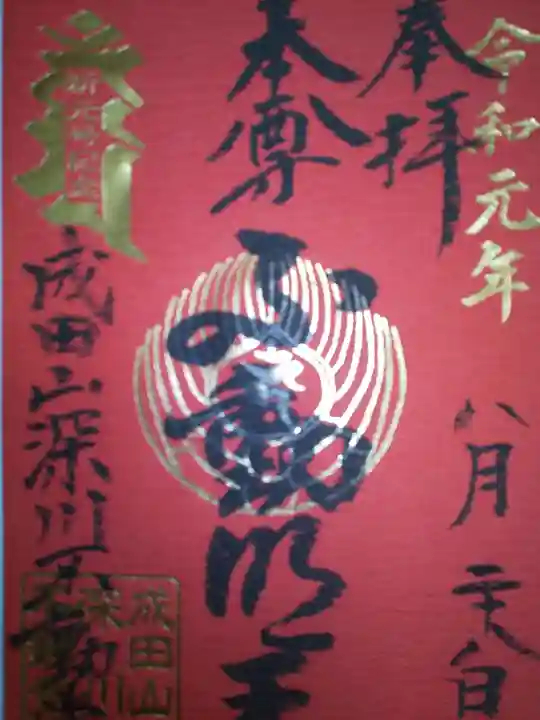 令和元年
奉拝
八月
本尊
不動明王
成田山深川不動
成田山
深川